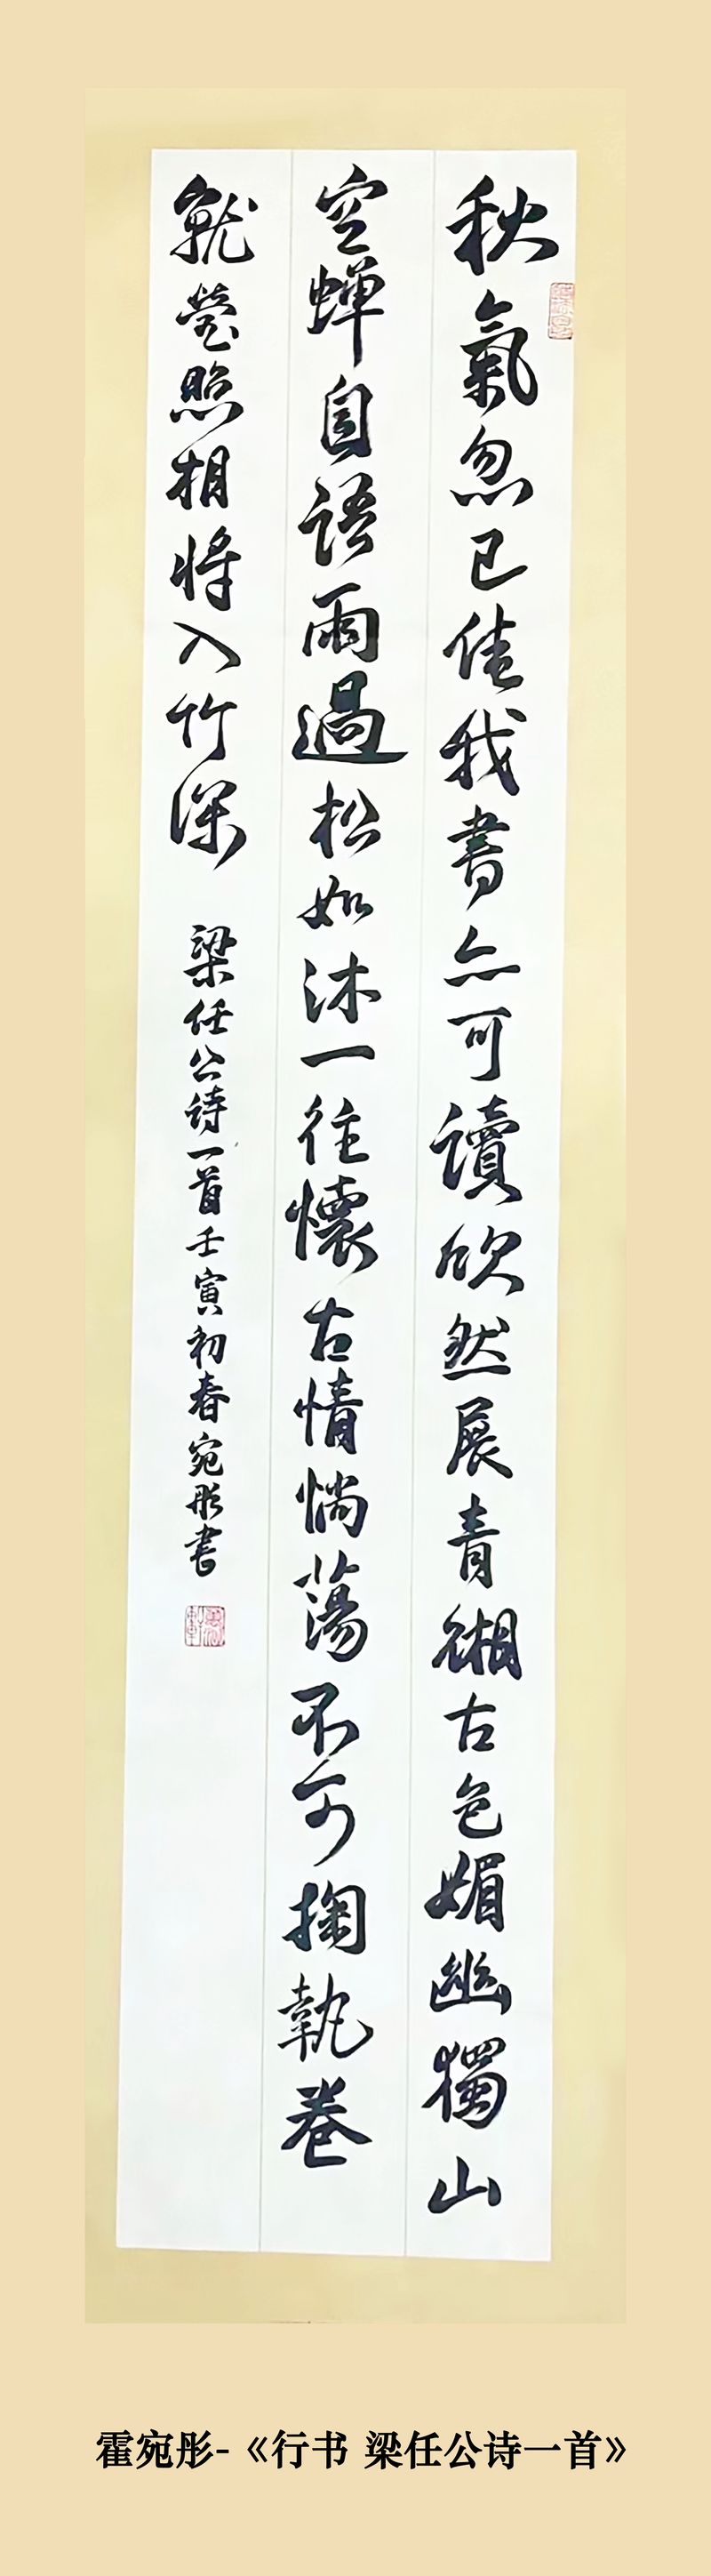 秋氣忽已佳我書亦可讀欣然展青緗古色媚幽獨山
空蟬自語雨過松如沐一往懷古情惝蕩不可掬執卷
就螢照相將入竹深
梁任公诗一首壬寅初春宛彤书
霍宛彤-《行书 梁任公诗一首》